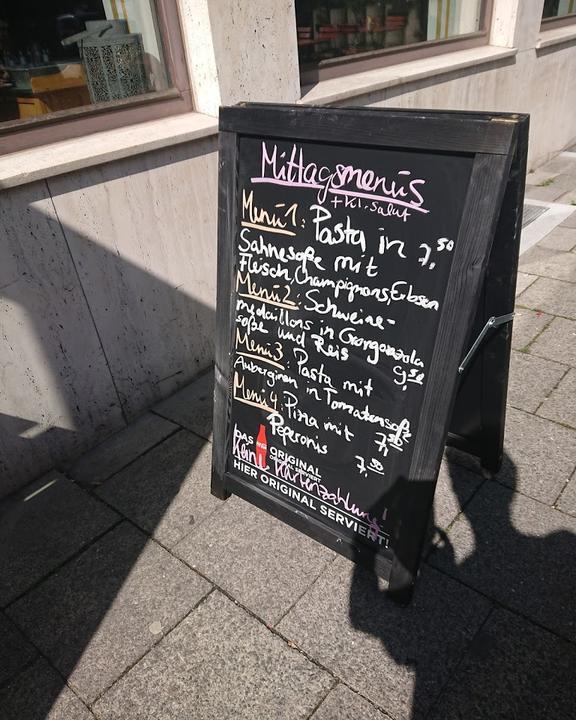 Mittagsmenüs
+ kl. Salat
Menü 1: Pasta in 7,50
Sahnesoße mit
Fleisch, Champignons, Erbsen
Menü 2: Schweine-
medaillons in Gorgonzola
soße und Reis 9,50
Menü 3: Pasta mit
Auberginen in Tomatensoße
7,50
Menü 4: Pizza mit
Peperonis 7,50
DAS ORIGINAL
Keine Kartenzahlung!
HIER ORIGINAL SERVIERT!